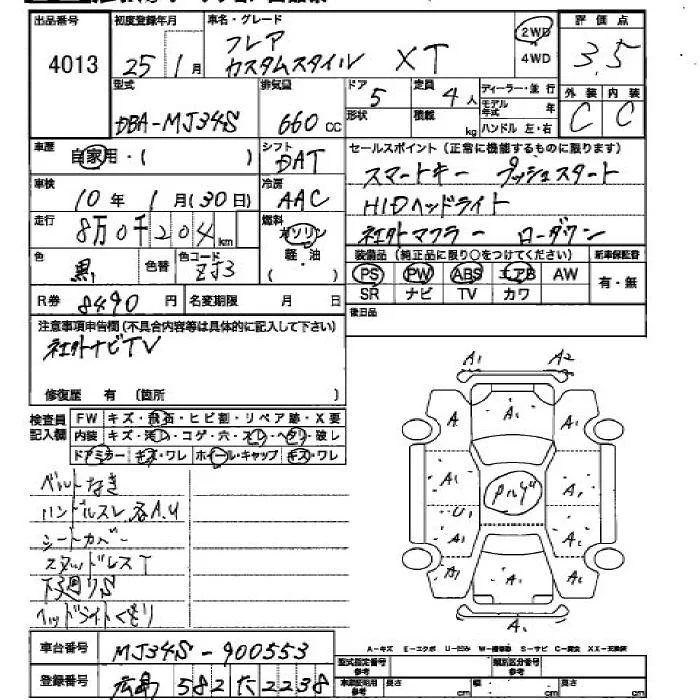 出品番号 4013
初度登録年月 25 1 月
車名・グレード フレア カスタムスタイル XT
2WD
4WD
評価点 3.5
型式 DBA-MJ34S
排気量 660 cc
ドア 5
形状
定員 4 人
積載 kg
ディーラー・並行
モデル年式 年
ハンドル 左・右
外装 内装
C C
車歴 自家用・( )
シフト DAT
セールスポイント(正常に機能するものに限ります)
スマートキー プッシュスタート
HIDヘッドライト
社外マフラー ローダウン
車検 10年 1月(30日)
冷房 AAC
走行 8万0千204km
燃料 ガソリン
軽・油
( )
色 黒 色替 色コード ZJ3
装備品(純正品に限り○をつけてください)
新車保証書
PS PW ABS エアB AW
SR ナビ TV カワ
有・無
R券 8490 円 名変期限 月 日
後日品
注意事項申告欄(不具合内容等は具体的に記入して下さい)
社外ナビTV
修復歴 有 (箇所 )
検査員記入欄
FW キズ・飛石・ヒビ割・リペア跡・X要
内装 キズ・汚れ・コゲ・穴・スレ・ヘタリ・破レ
ドアミカー キズ・ワレ ホイール・キャップ キズ・ワレ
ベルトなき
ハンドルスレ 各A.U
シートカバー
スタッドレスT
下廻りS
ヘッドライトくもり
A1 A2
A A1 A1
A1 A1
U1
A1 A1
A1 A1 A2
A1
車台番号 MJ34S-900553
登録番号 広島 582 た 2238
A-キズ E-エクボ U-凹み W-補修跡 S-サビ C-腐食 XX-交換済
型式指定番号 参考
類別区分番号 参考
車庫証明用参考 長さ cm 幅 cm 高さ cm